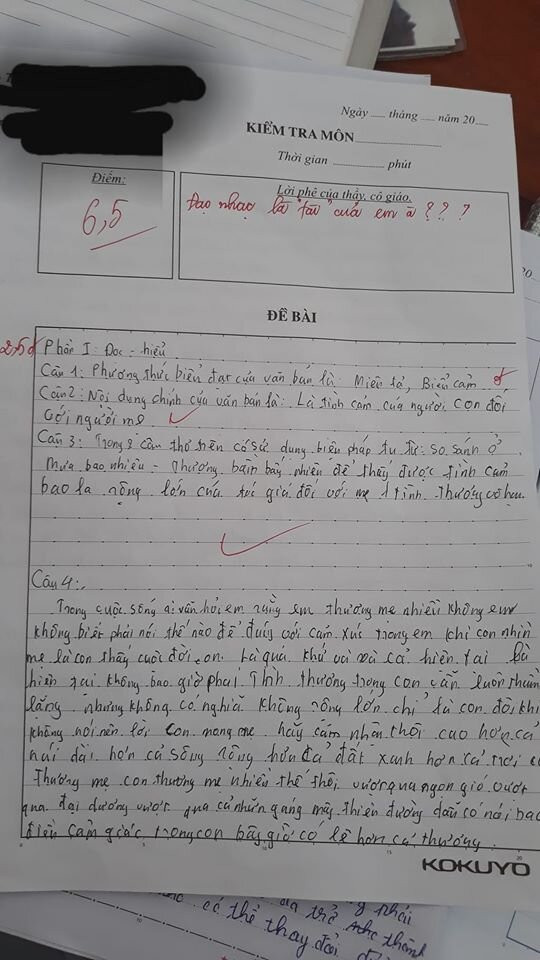 Ngày ___ tháng ___ năm 20___
KIỂM TRA MÔN
Thời gian ________ phút
Điểm:
6,5
Lời phê của thầy, cô giáo.
Đạo nhạc là "tài" của em à ? ? ?
ĐỀ BÀI
2,5đ Phần I: Đọc - hiểu
Câu 1: Phương thức biểu đạt của văn bản là: Miêu tả, Biểu cảm
Câu 2: Nội dung chính của văn bản là: Là tình cảm của người con đối
với người mẹ
Câu 3: Trong 2 câu thơ trên có sử dụng biện pháp tu từ: so sánh ở
Mưa bao nhiêu - Thương bấy nhiêu để thấy được tình cảm
bao la rộng lớn của tác giả đối với mẹ 1 tình thương vô hạn
Câu 4:
Trong cuộc sống ai vẫn hỏi em rằng em thương mẹ nhiều không em
không biết phải nói thế nào để đúng với cảm xúc trong em khi con nhìn
mẹ là con thấy cuộc đời con Là quá khứ và và cả hiện tại Là
hiện tại không bao giờ phai Tình thương trong con vẫn luôn thầm
lặng nhưng không có nghĩa không rộng lớn chỉ là con đôi khi
không nói nên lời con mong mẹ hãy cảm nhận thôi cao hơn cả
núi dài hơn cả sông rộng hơn cả đất xanh hơn cả trời
Thương mẹ con thương mẹ nhiều thế thôi vượt qua ngọn gió vượt
qua đại dương vượt qua cả những gang mây thiên đường dẫu có nói bao
điều cảm giác trong con bây giờ có lẽ hơn cả thương.
KOKUYO
phải
trẻ thành
có thể thay đổi